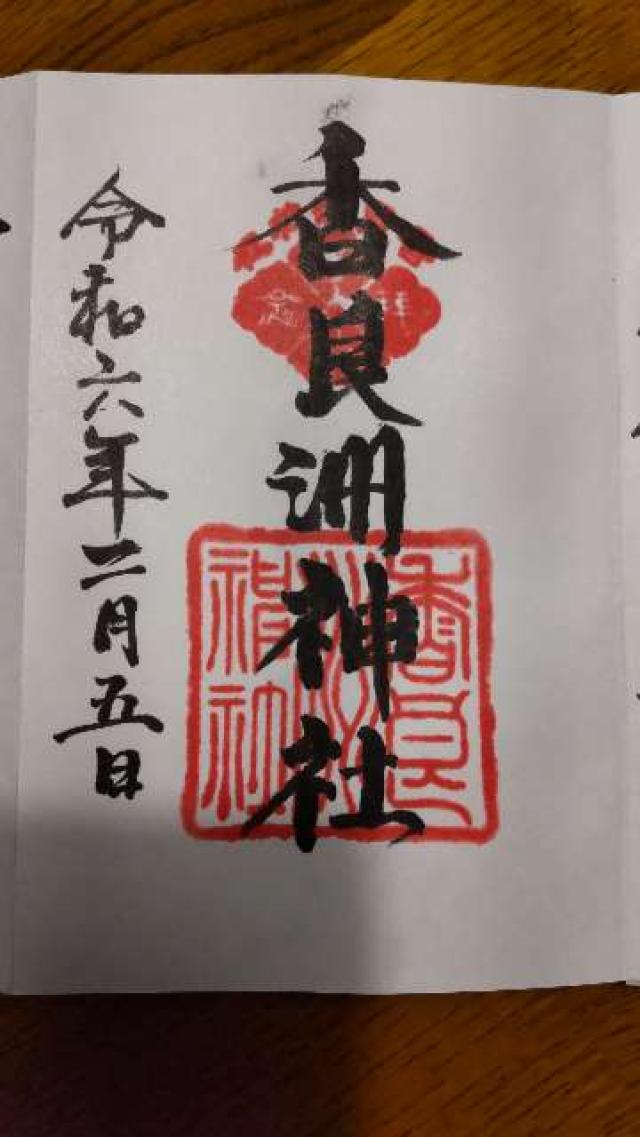 香良洲神社
令和六年二月五日
香良洲神社